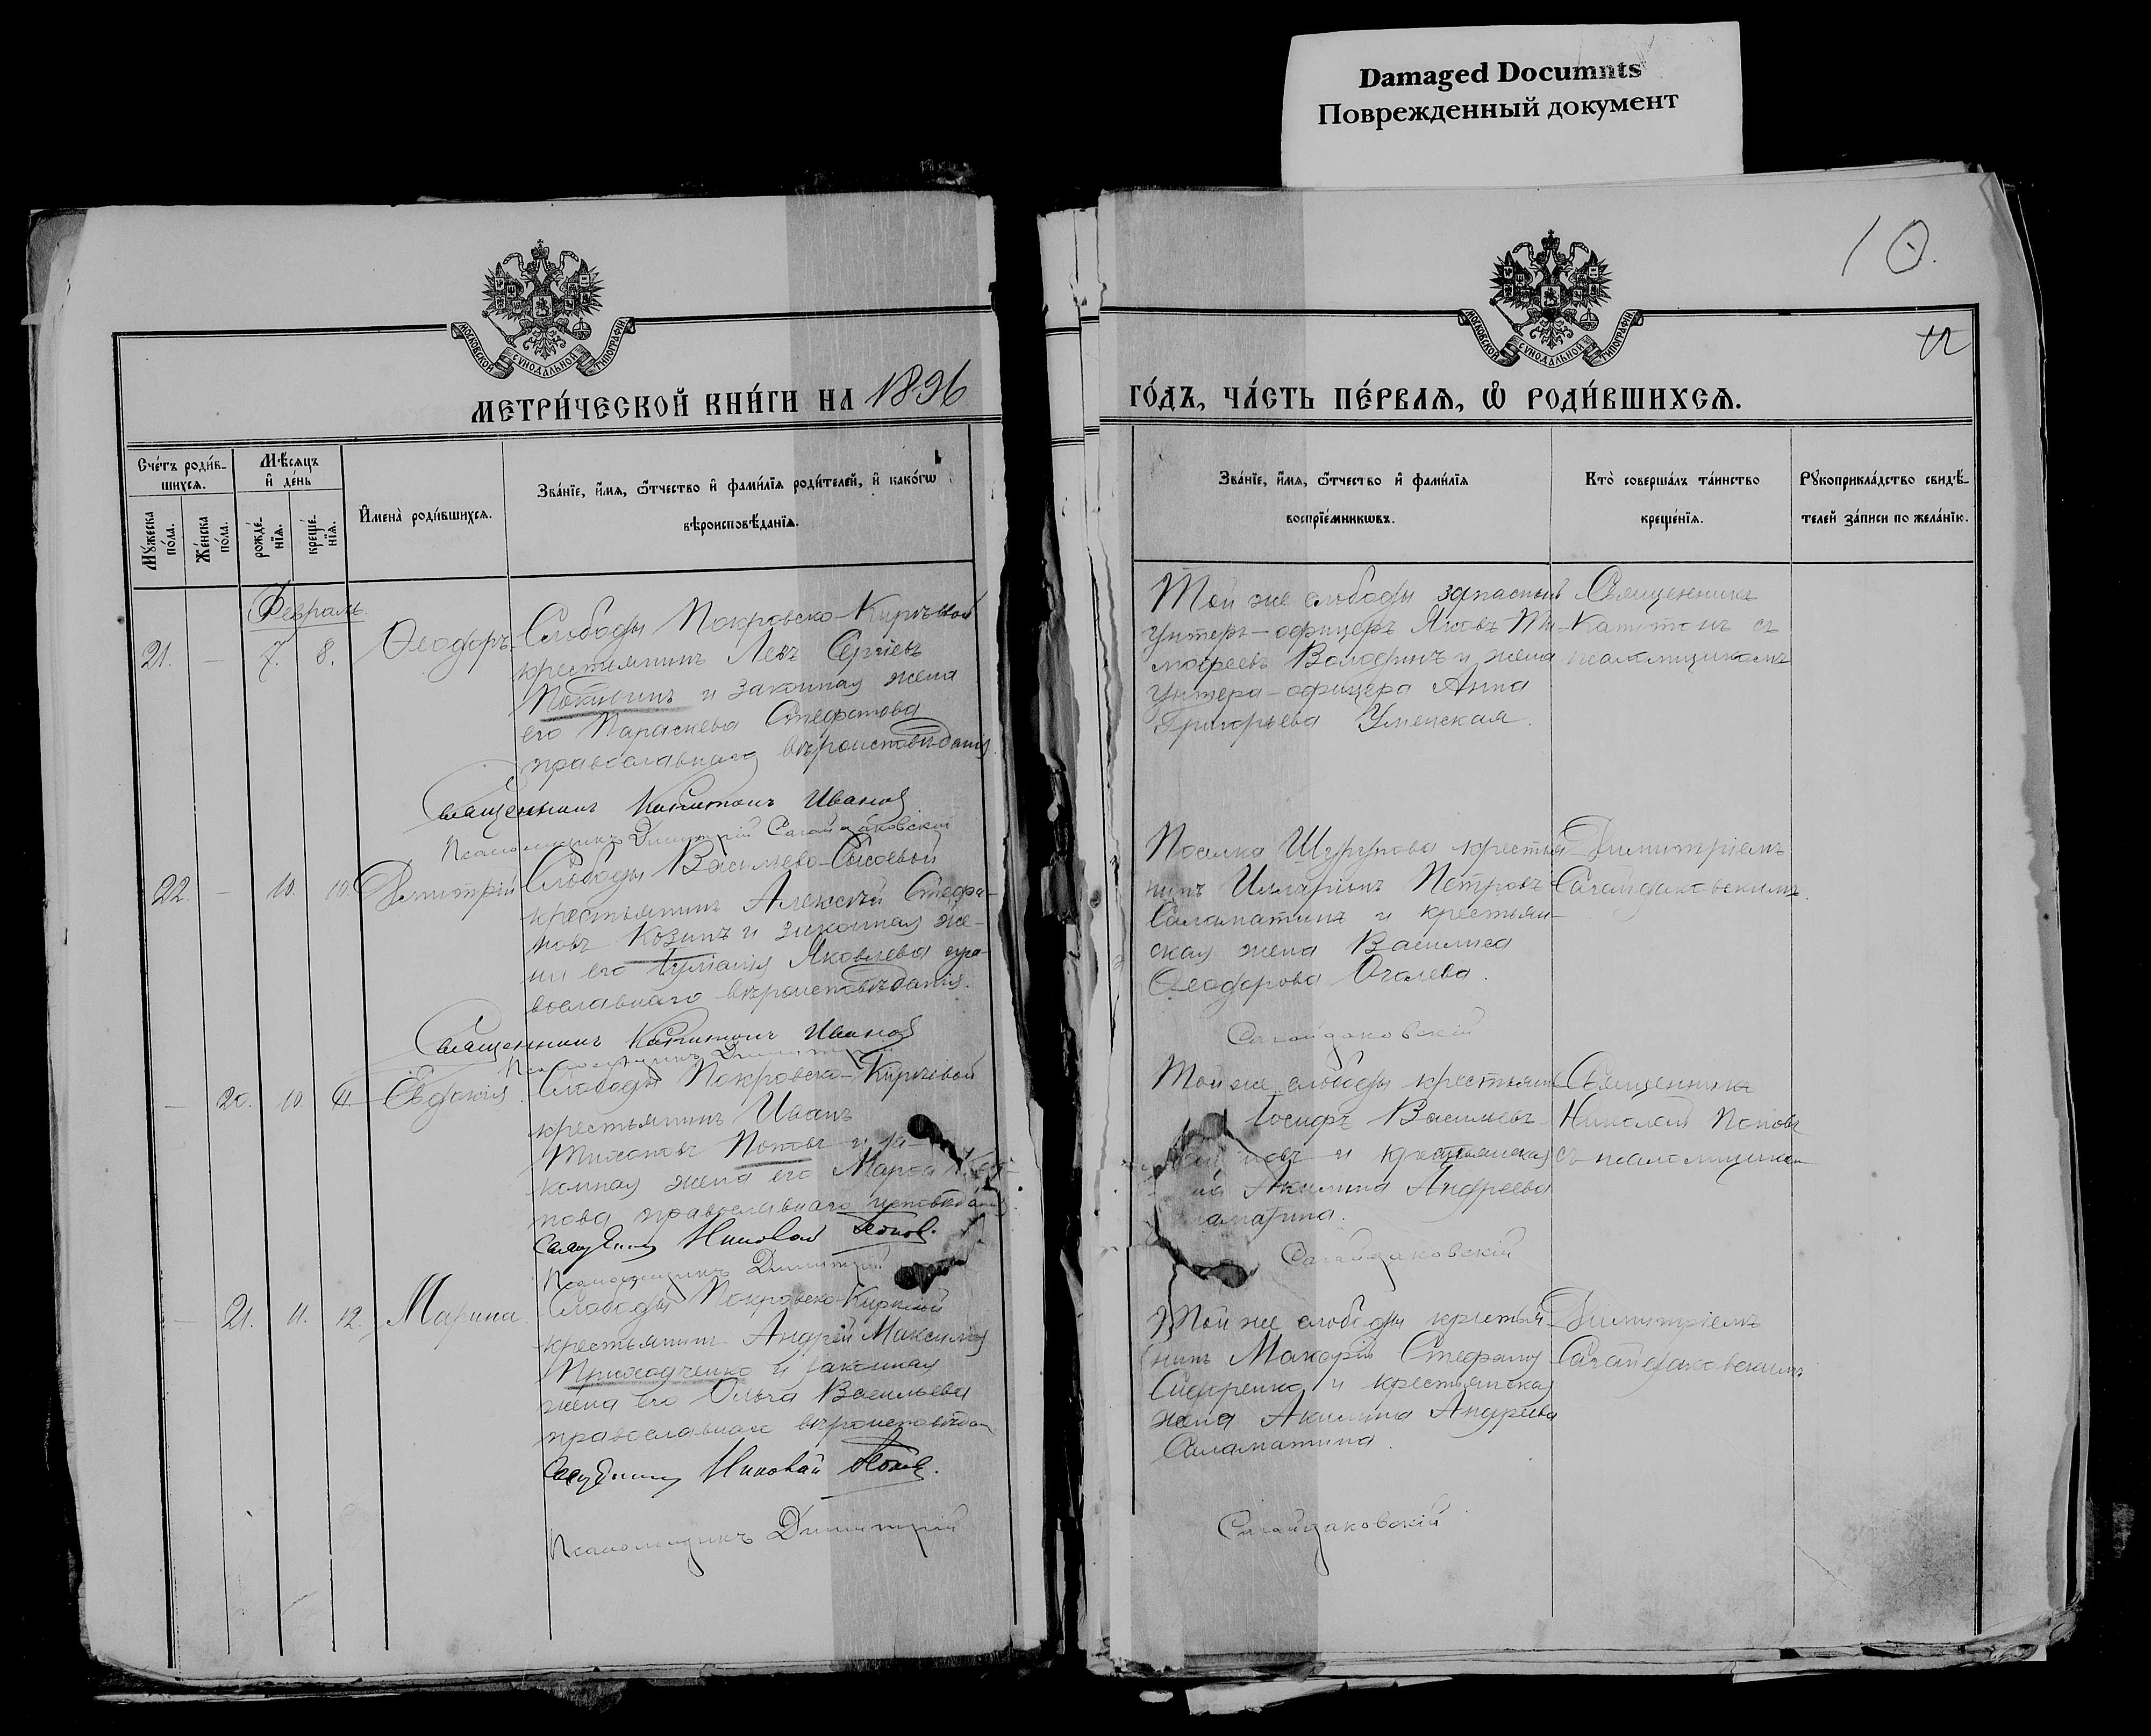 Damaged Documnts
Поврежденный документ
10.
12
МОСКОВСКОЙ СѴНОДАЛЬНОЙ ТИПОГРАФІИ
МОСКОВСКОЙ СѴНОДАЛЬНОЙ ТИПОГРАФІИ
МЕТРИ́ЧЕСКОЙ КНИ́ГИ НА 1896
ГО́ДЪ, ЧА́СТЬ ПЕ́РВАѦ, Ѡ҆ РОДИ́ВШИХСѦ.
Сче́тъ роди́в-
шихсѧ.
Мѣ́сѧцъ
и҆ де́нь
Мꙋ́жеска
по́ла.
Же́нска
по́ла.
рожде́-
нїѧ.
креще́-
нїѧ.
И҆мена̀ роди́вшихсѧ.
Зва́нїе, и҆́мѧ, ѻ҆́тчество и҆ фами́лїѧ роди́телей, и҆ како́гѡ
вѣроисповѣ́данїѧ.
Зва́нїе, и҆́мѧ, ѻ҆́тчество и҆ фами́лїѧ
воспрїе́мникѡвъ.
Кто̀ соверша́лъ та́инство
креще́нїѧ.
Рꙋкоприкла́дство свидѣ́-
телей за́писи по жела́нїю.
Февраль.
21. — 7. 8. Ѳеодоръ.
Слободы Покровско-Кир
крестьянинъ Левъ Сергіевъ
и законная жена
его Параскева Стефанова
православнаго вѣроисповѣданія.
Священникъ Капитонъ Иванов
Псаломщикъ Димитрій Сагайдаковскій
Той же слободы запасный
унтеръ-офицеръ Яковъ Ти-
мофеевъ Володинъ и жена
унтера-офицера Анна
Григорьева Уменская.
Священникъ
Капитонъ съ
псаломщикомъ
22. — 10. 10. Димитрій
Слободы Васильево-Сысоевой
крестьянинъ Алексѣй Стефа-
новъ Козинъ и законная же-
на его Іуліанія Яковлева пра-
вославнаго вѣроисповѣданія.
Священникъ Капитонъ Иванов
Псаломщикъ Димитрій
Поселка крестья-
нинъ Илларіонъ Петровъ
Саламатинъ и крестьян-
ская жена Василиса
Ѳеодорова
Сагайдаковскій
Димитріемъ
Сагайдаковскимъ.
— 20. 10. 11 Евдокія
Слободы Покровско-Киричевой
крестьянинъ Иванъ
Тихоновъ Поповъ и за-
конная жена его Марѳа
пова православнаго исповѣданія
Священникъ Николай Попов.
Псаломщикъ Димитрій
Той же слободы крестьян
Іосифъ Васильевъ
и крестьянская
на Акилина Андреева
ламатина.
Сагайдаковскій
Священникъ
Николай Поповъ
съ псаломщиком
— 21. 11. 12. Марина.
Слободы Покровско-Кир
крестьянинъ Андрей Максимов
Приходченко и законная
жена его Ольга Васильева
православнаго вѣроисповѣдан
Священникъ Николай Попов.
Псаломщикъ Димитрій
Той же слободы крестья-
нинъ Макарій Стефанов
Сидоренко и крестьянская
жена Акилина Андреева
Саламатина.
Сагайдаковскій
Димитріемъ
Сагайдаковскимъ